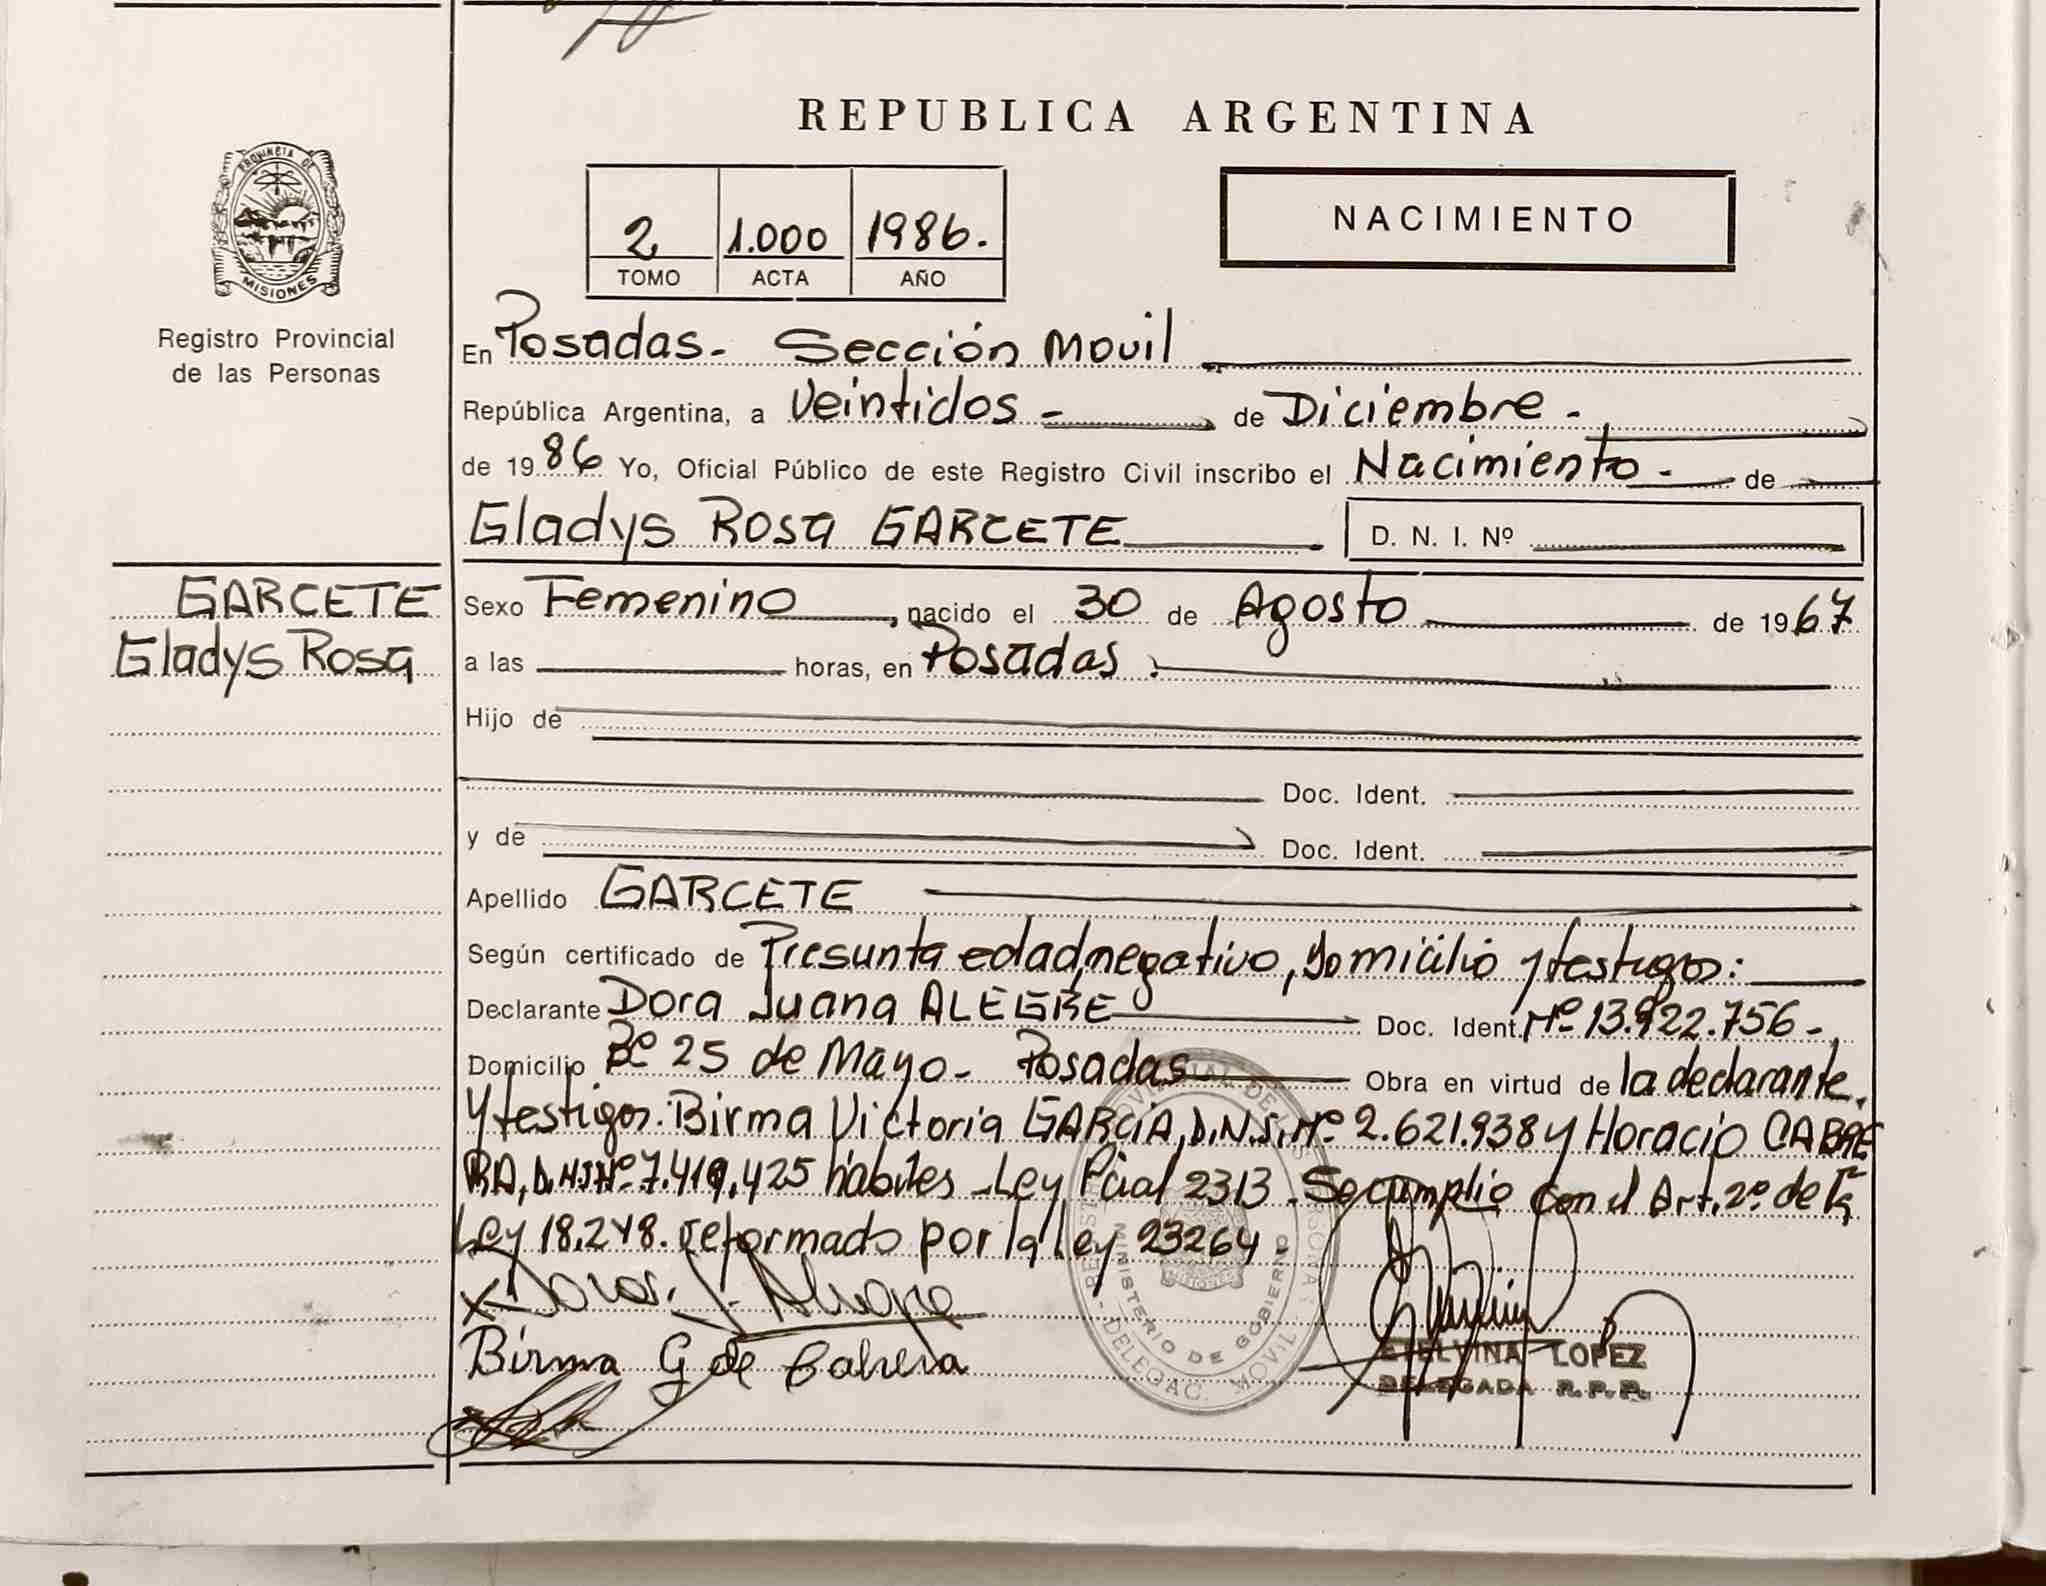 REPUBLICA ARGENTINA
PROVINCIA DE
MISIONES
Registro Provincial
de las Personas
2 1.000 1986.
TOMO ACTA AÑO
NACIMIENTO
En Posadas- Sección Movil
República Argentina, a Veintidos - de Diciembre -
de 1986 Yo, Oficial Público de este Registro Civil inscribo el Nacimiento - de
Gladys Rosa GARCETE D. N. I. Nº
GARCETE
Gladys Rosa
Sexo Femenino, nacido el 30 de Agosto de 1967
a las horas, en Posadas.
Hijo de
Doc. Ident.
y de Doc. Ident.
Apellido GARCETE
Según certificado de Presunta edad, negativo, domicilio y testigos:
Declarante Dora Juana ALEGRE Doc. Ident. Nº 13.922.756-
Domicilio Bº 25 de Mayo- Posadas Obra en virtud de la declarante.
y testigos: Birma Victoria GARCIA, D.N.I. Nº 2.621.938 y Horacio CABRE
RA, D.N.I Nº 7.419.425 hábiles - Ley Pcial 2313 - Se cumplio con el Art. 2º de la
Ley 18.248. reformado por la ley 23264-
x Dora J. Alegre
Birma G de Cabrera
MINISTERIO DE GOBIERNO
DELEGAC. MOVIL
ETELVINA LOPEZ
DELEGADA R.P.P.